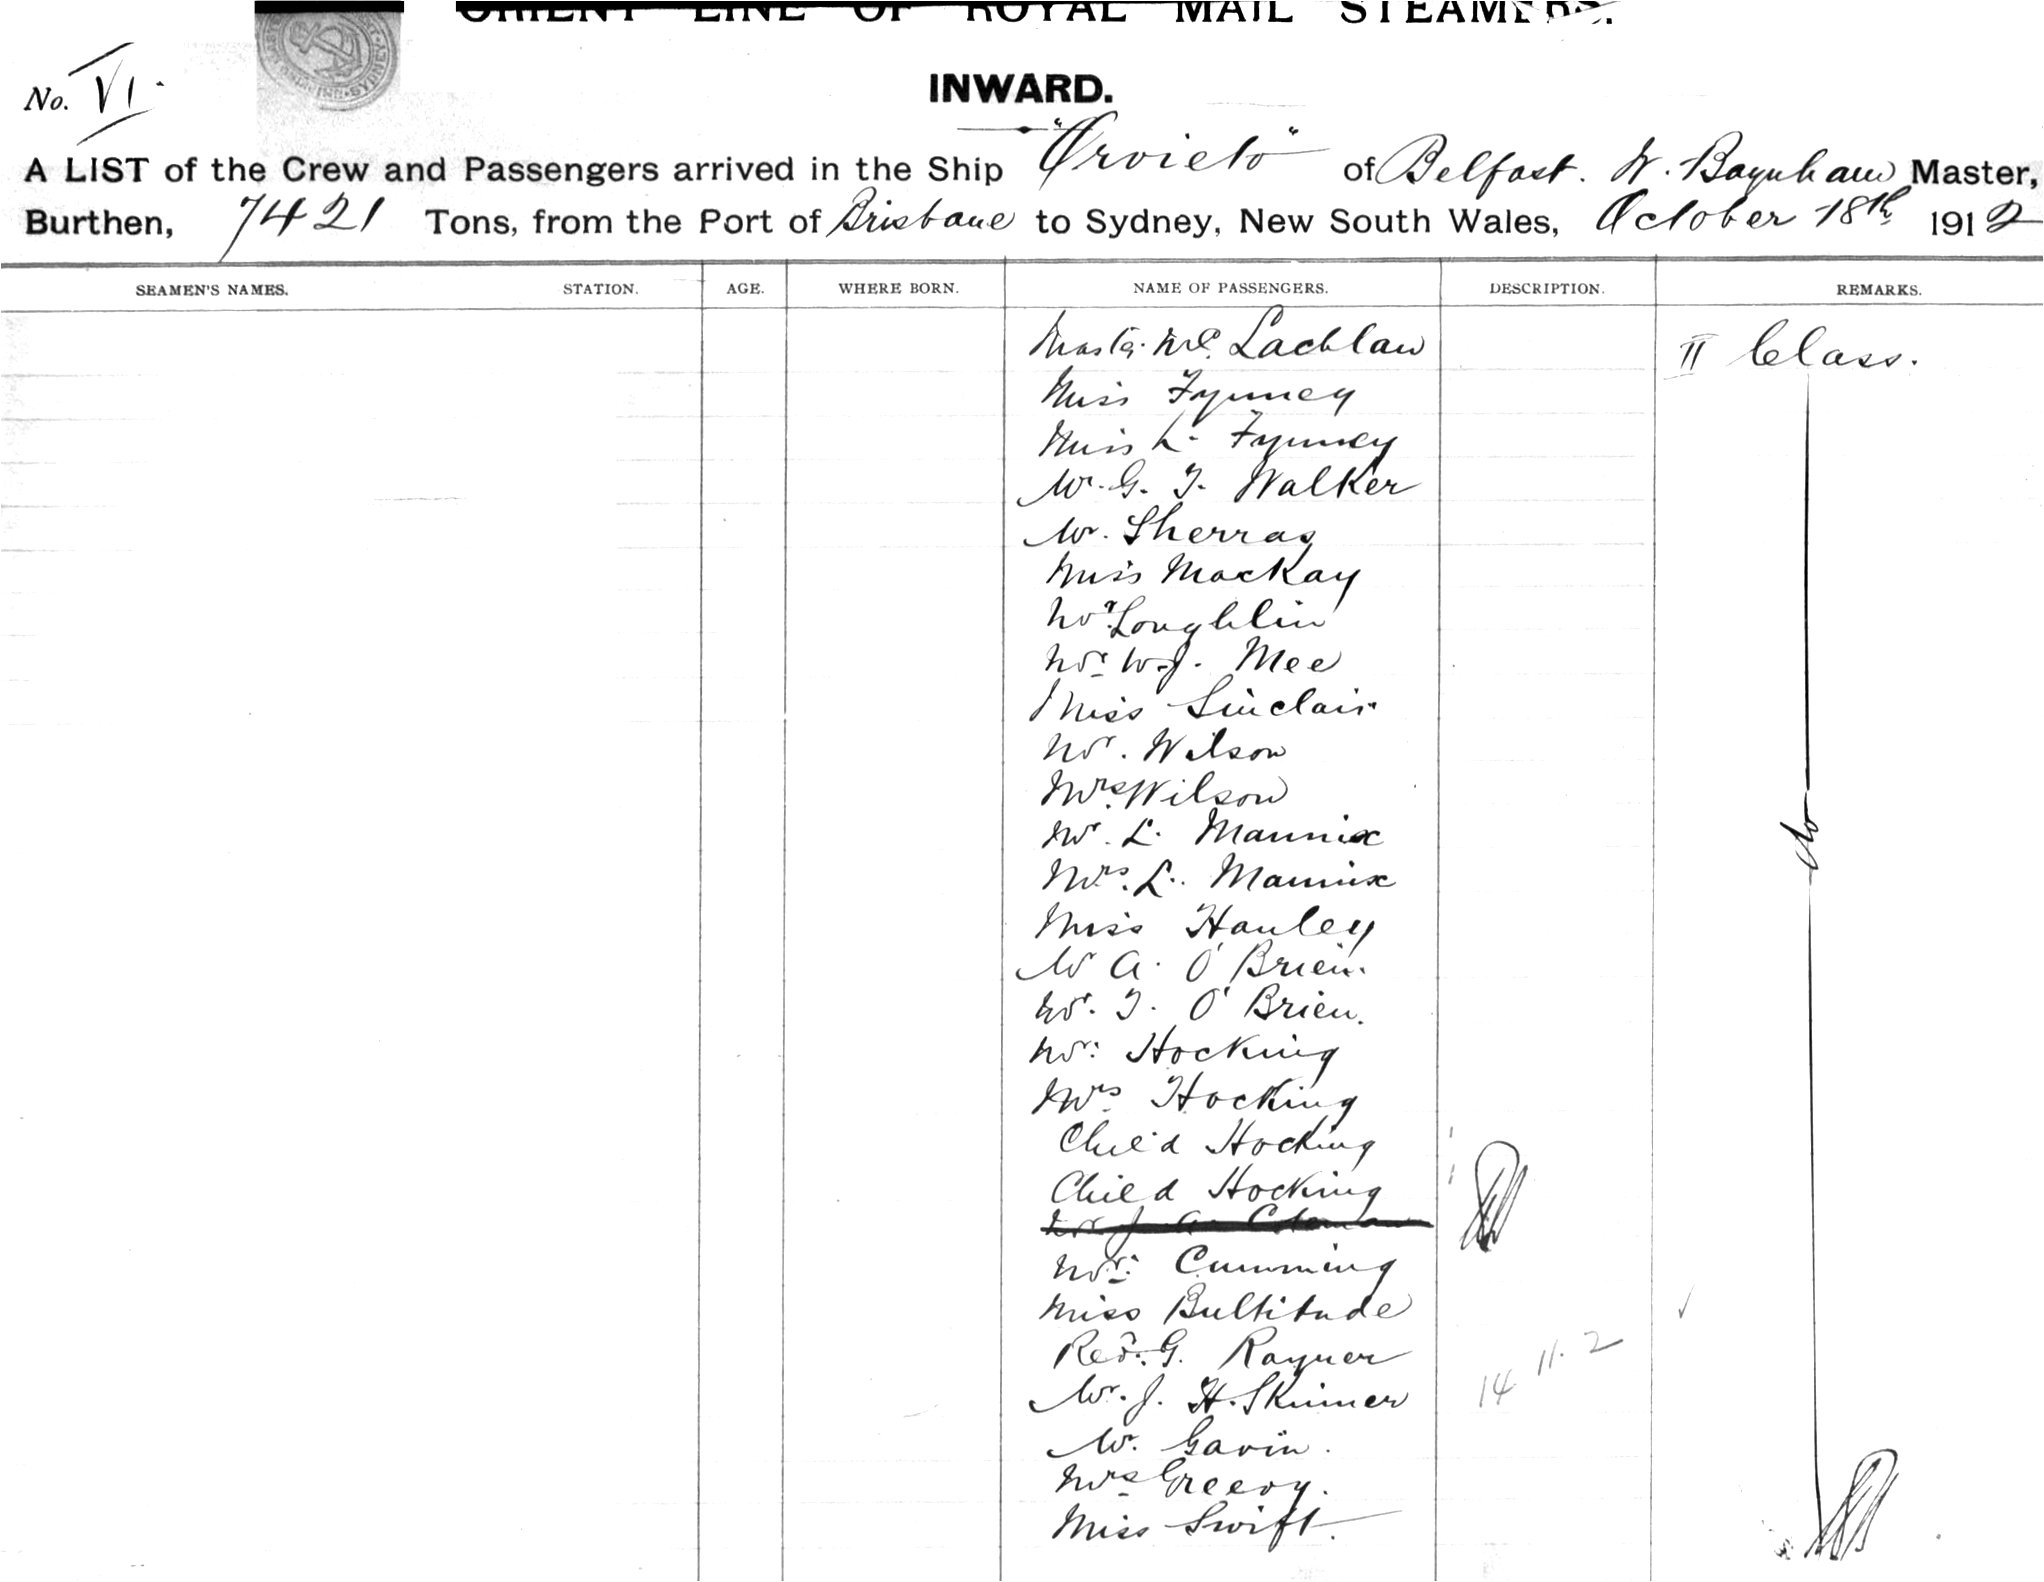 ORIENT LINE OF ROYAL MAIL STEAMERS.
No. VI.
INWARD.
A LIST of the Crew and Passengers arrived in the Ship "Orvieto" of Belfast. W. Baynham Master,
Burthen, 7421 Tons, from the Port of Brisbane to Sydney, New South Wales, October 18th 1912
SEAMEN'S NAMES. STATION. AGE. WHERE BORN. NAME OF PASSENGERS. DESCRIPTION. REMARKS.
Master Mc Lachlan II Class.
Miss Fynney
Miss L. Fynney
Mr. G. T. Walker
Mr. Sherras
Miss MacKay
Mr. Loughlin
Mr. W. J. Mee
Miss Sinclair
Mr. Wilson
Mrs. Wilson
Mr. L. Mannix
do
Mrs. L. Mannix
Miss Hanley
Mr A. O'Brien.
Mr. T. O'Brien.
Mr. Hocking
Mrs Hocking
Child Hocking
Child Hocking
Mr J. A. Coleman
Mr. Cumming
Miss Bultitude
Rev. G. Rayner
14 11. 2
Mr. J. H. Skinner
Mr. Gavin.
Mrs Greevy.
Miss Swift.